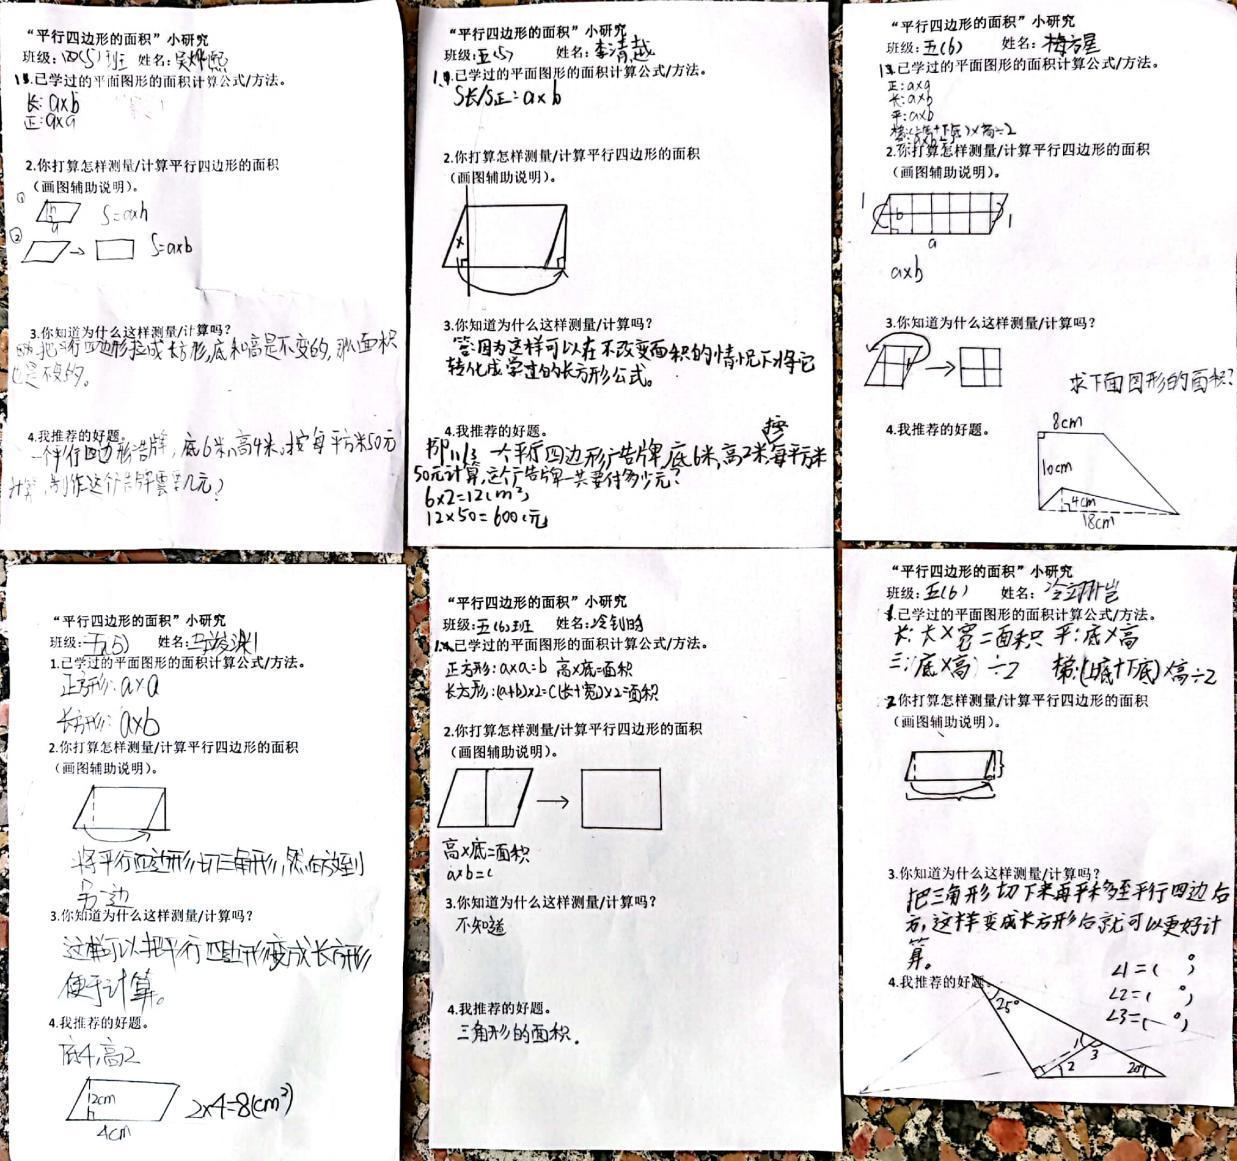 “平行四边形的面积”小研究
班级:四(5)班 姓名:
1.已学过的平面图形的面积计算公式/方法。
长:a×b
正:a×a
2.你打算怎样测量/计算平行四边形的面积
（画图辅助说明）。
① h a S=a×h
② S=a×b
3.你知道为什么这样测量/计算吗?
把平行四边形拉成长方形,底和高是不变的,所以面积
也是不变的。
4.我推荐的好题。
一个平行四边形告牌,底6米,高4米,按每平方米50元
计算,制作这个告牌需要几元?
“平行四边形的面积”小研究
班级:五(5) 姓名:李清越
1.已学过的平面图形的面积计算公式/方法。
S长/S正=a×b
2.你打算怎样测量/计算平行四边形的面积
（画图辅助说明）。
x
3.你知道为什么这样测量/计算吗?
答:因为这样可以在不改变面积的情况下将它
转化成学过的长方形公式。
4.我推荐的好题。
一个平行四边形广告牌,底6米,高2米,按每平方米
50元计算,这个广告牌一共要付多少元?
6×2=12(m²)
12×50=600(元)
“平行四边形的面积”小研究
班级:五(6) 姓名:梅方星
1.已学过的平面图形的面积计算公式/方法。
正:a×a
长:a×b
平:a×b
梯:(上底+下底)×高÷2
2.你打算怎样测量/计算平行四边形的面积
（画图辅助说明）。
1 b 1
a
a×b
3.你知道为什么这样测量/计算吗?
求下面图形的面积?
4.我推荐的好题。
8cm
10cm
4cm
18cm
“平行四边形的面积”小研究
班级:五(5) 姓名:
1.已学过的平面图形的面积计算公式/方法。
正方形:a×a
长方形:a×b
2.你打算怎样测量/计算平行四边形的面积
（画图辅助说明）。
将平行四边形切三角形,然后放到
另一边
3.你知道为什么这样测量/计算吗?
这样可以把平行四边形变成长方形
便于计算。
4.我推荐的好题。
底4,高2
2cm
4cm
2×4=8(cm²)
“平行四边形的面积”小研究
班级:五(6)班 姓名:冷钊旸
1.已学过的平面图形的面积计算公式/方法。
正方形:a×a=b 高×底=面积
长方形:(a+b)×2=c(长+宽)×2=面积
2.你打算怎样测量/计算平行四边形的面积
（画图辅助说明）。
高×底=面积
a×b=c
3.你知道为什么这样测量/计算吗?
不知道
4.我推荐的好题。
三角形的面积.
“平行四边形的面积”小研究
班级:五(6) 姓名:
1.已学过的平面图形的面积计算公式/方法。
长:长×宽=面积 平:底×高
三:(底×高)÷2 梯:(上底+下底)×高÷2
2.你打算怎样测量/计算平行四边形的面积
（画图辅助说明）。
3.你知道为什么这样测量/计算吗?
把三角形切下来再平移至平行四边右
方,这样变成长方形后就可以更好计
算。
4.我推荐的好题。
∠1=( °)
∠2=( °)
∠3=( °)
25°
1
3
2
20°